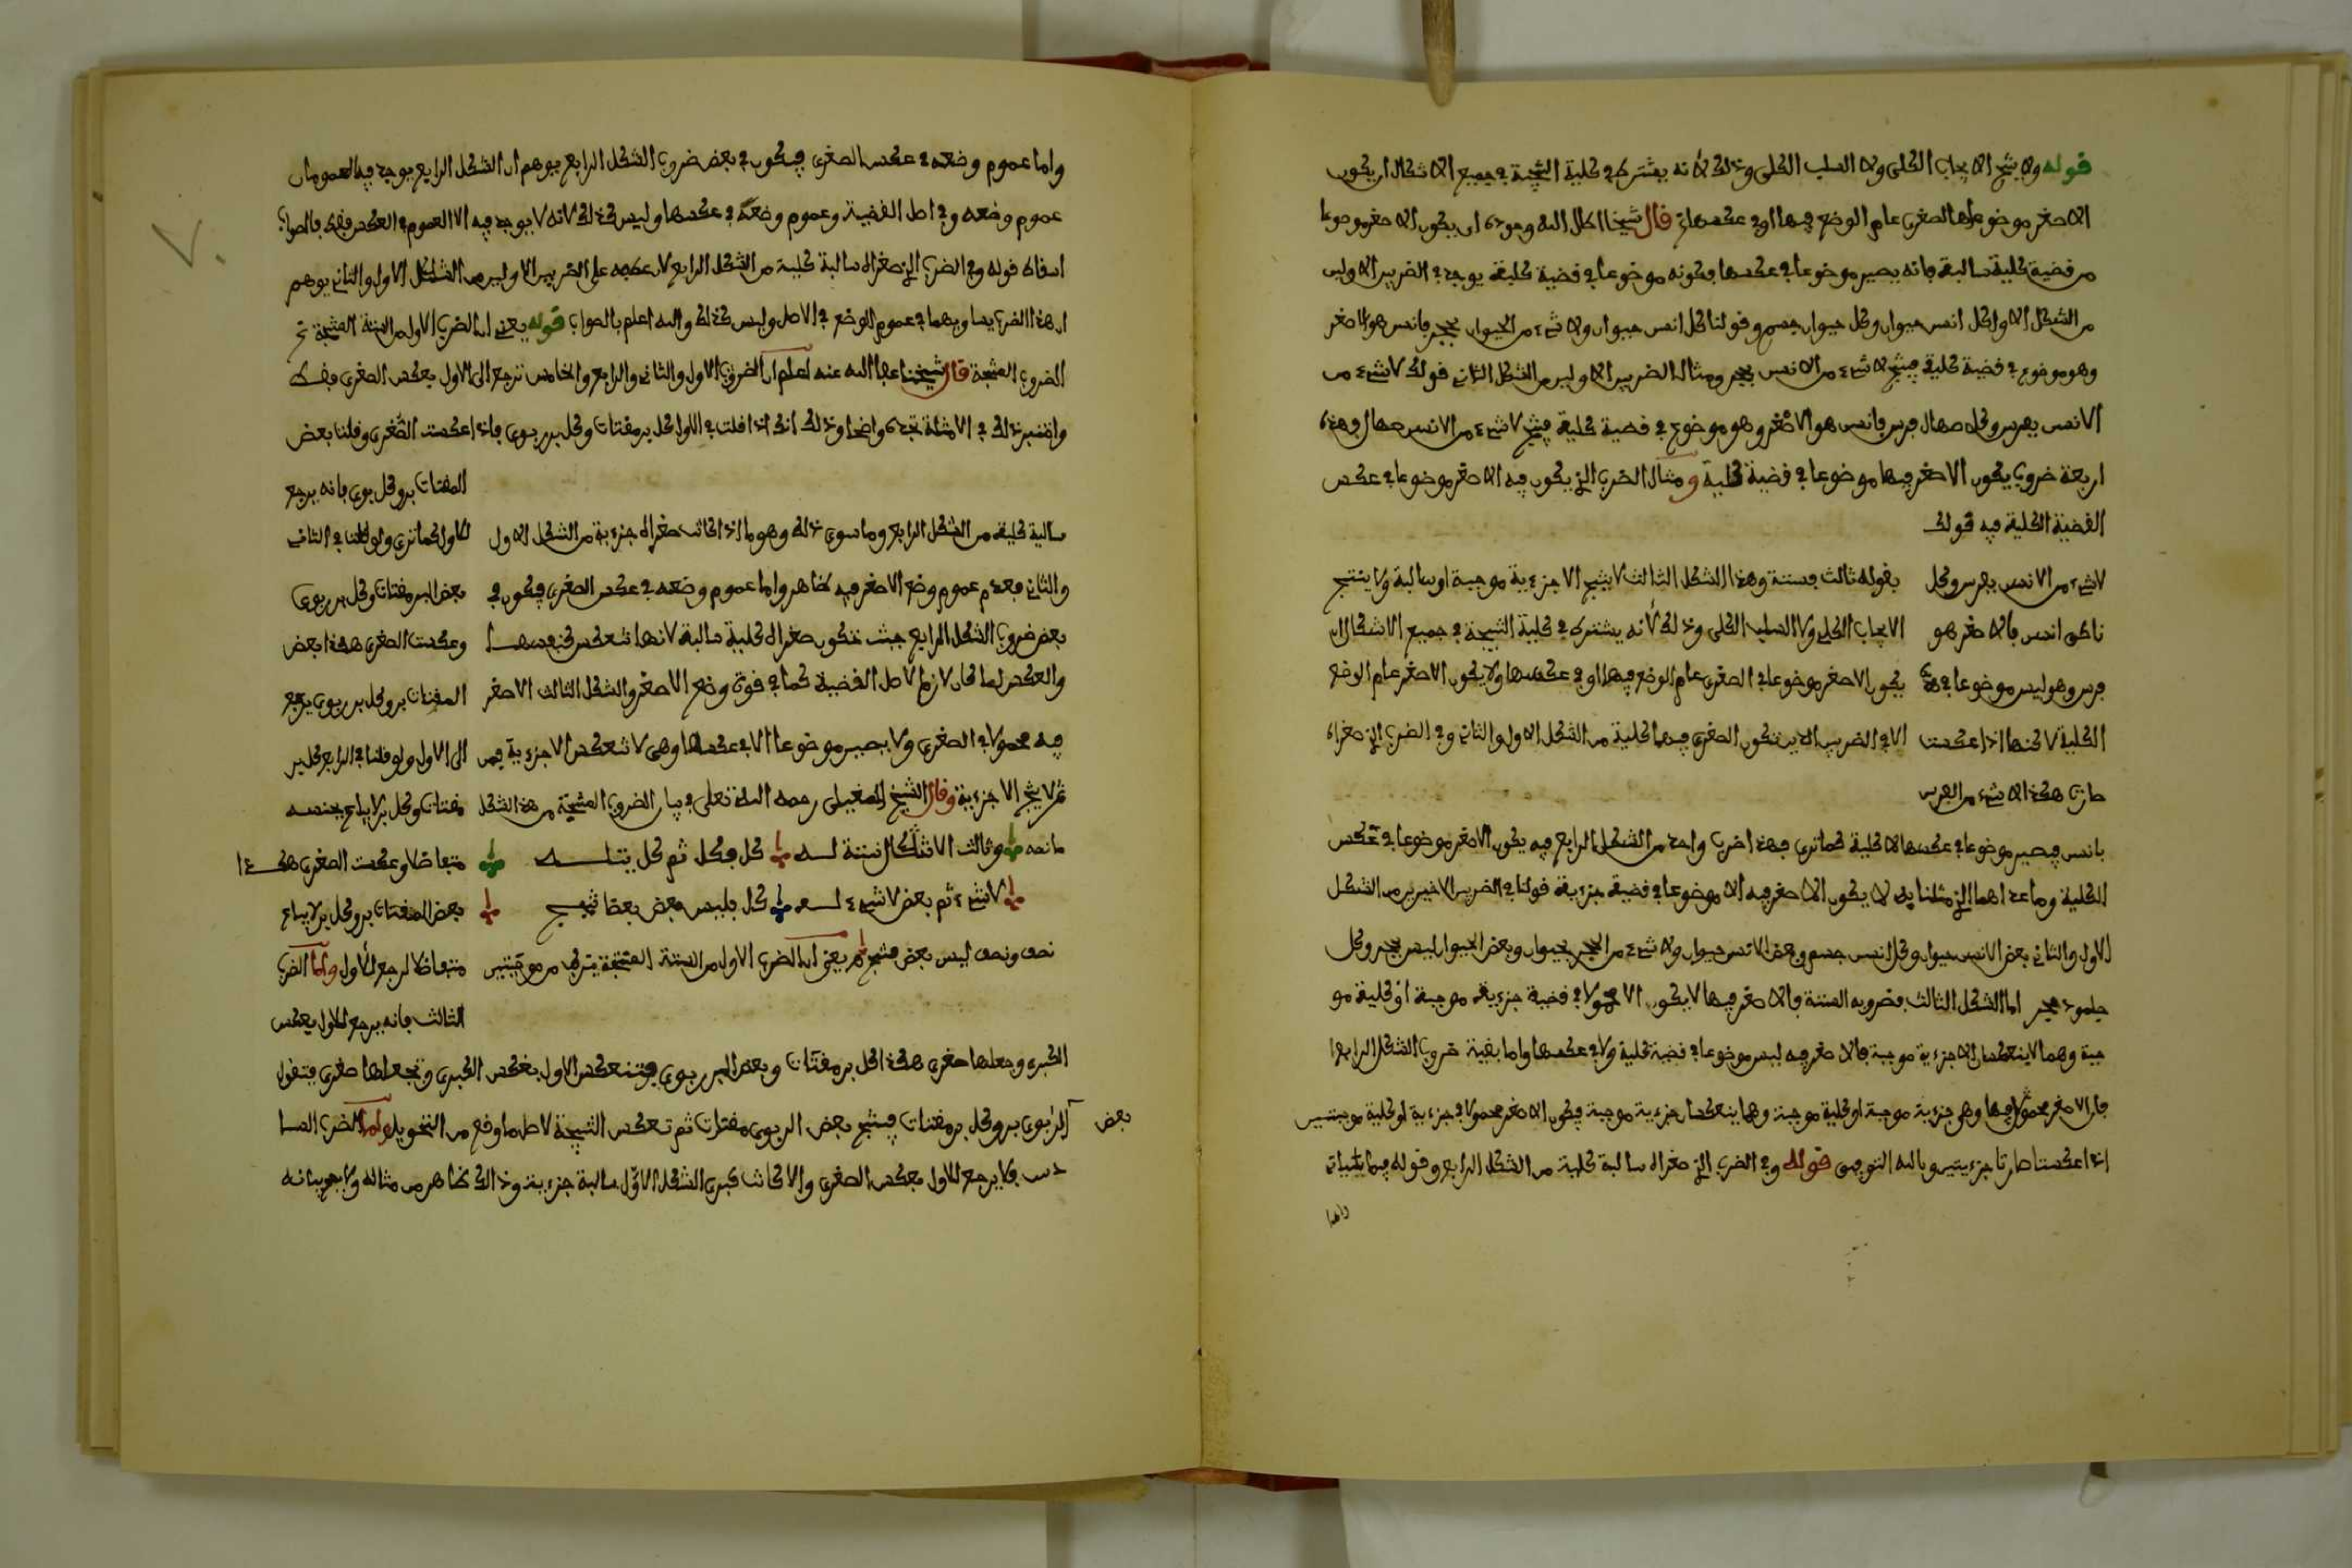 قوله ولا ينتج الايجاب الكلي ولا السلب الكلي وذلك لأنه يشترط في كلية النتيجة في جميع الاشكال ان يكون
الاصغر موضوعا في الصغرى عام الوضع فيها او في عكسها قال شيخنا اكل الله وجوده ان يكون الاصغر موضوعا
من قضية كلية سالبة فانه يصير موضوعا في عكسها فكونه موضوعا في قضية كلية يوجد في الضربين الاولين
من الشكل الاول كل انس حيوان وكل حيوان جسم وقولنا كل انس حيوان ولا شيء من الحيوان بحجر فانس هو الاصغر
وهو موضوع في قضية كلية فينتج لا شيء من الانس بحجر ومثال الضربين الاولين من الشكل الثاني قولك لا شيء من
الانس بفرس وكل صهال فرس فانس هو الاصغر وهو موضوع في قضية كلية فينتج لا شيء من الانس صهال فهذه
اربعة ضروب يكون الاصغر فيها موضوعا في قضية كلية ومثال الضرب الذي يكون فيه الاصغر موضوعا في عكس
القضية الكلية فيه قولك
لا شيء من الانس بفرس وكل
ناطق انس فالاصغر هو
فرس وهو ليس موضوعا في هذه
الكلية لاكنها اذا عكست
صارت هكذا لا شيء من الفرس
بقوله ثالث فستة وهذا الشكل الثالث لا ينتج الا جزءية موجبة او سالبة ولا ينتج
الايجاب الكلي ولا السلب الكلي وذلك لأنه يشترط في كلية النتيجة في جميع الاشكال ان
يكون الاصغر موضوعا في الصغرى عام الوضع فيها او في عكسها ولا يكون الاصغر عام الوضع
الا في الضربين الذين تكون الصغرى فيهما كلية من الشكل الاول والثاني وفي الضرب الذي صغراه
بانس فيصير موضوعا في عكسها الا كلية كما ترى فهذا ضرب واحد من الشكل الرابع فيه يكون الاصغر موضوعا في عكس
الكلية وما عدا هما الذي مثلنا به لا يكون الاصغر فيه الا موضوعا في قضية جزءية قولنا في الضربين الاخيرين من الشكل
الاول والثاني بعض الانس حيوان وكل انس جسم وبعض الانس حيوان ولا شيء من الحجر بحيوان وبعض الحيوان ليس بحجر وكل
جلمود حجر اما الشكل الثالث فضروبه الستة فالاصغر فيها لا يكون الا محمولا في قضية جزءية موجبة او كلية مو
جبة وهما لا ينعكسان الا جزءية موجبة فالاصغر فيه ليس موضوعا في قضية كلية ولا في عكسها واما بقية ضروب الشكل الرابع
فان الاصغر محمول فيها وهي جزءية موجبة او كلية موجبة وهما ينعكسان جزءية موجبة فيكون الاصغر محمولا في جزءية او كلية موجبتين
اذا عكستا صارتا جزءيتين وبالله التوفيق قوله وفي الضرب الذي صغراه سالبة كلية من الشكل الرابع وقوله فيما ياتي
واما
واما عموم وضعه في عكس الصغرى فيكون في بعض ضروب الشكل الرابع يوهم ان الشكل الرابع يوجد فيه العمومان
عموم وضعه في اصل القضية وعموم وضعه في عكسها وليس كذلك لأنه لا يوجد فيه الا العموم في العكس فقط فالصواب
اسقاط قوله وفي الضرب الذي صغراه سالبة كلية من الشكل الرابع لان عطفه على الضربين الاولين من الشكل الاول والثاني يوهم
ان هذا الضرب يساويهما في عموم الوضع في الاصل وليس كذلك والله اعلم بالصواب قوله يعني ان الضرب الاول من الستة المنتجة
الضروب المنتجة قال شيخنا عفا الله عنه اعلم ان الضرب الاول والثاني والرابع والخامس ترجع الى الاول بعكس الصغرى فقط
واختبر ذلك في الامثلة تجده واضحا وذلك انك اذا قلت في الاول كل بر مقتات وكل بر ربوي فاذا عكست الصغرى وقلنا بعض
المقتات بر وكل بوي فانه يرجع
للاول كما ترى ولو قلنا في الثاني
بعض البر مقتات وكل بر ربوي
وعكست الصغرى هكذا بعض
المقتات بر وكل بر ربوي يرجع
الى الاول ولو قلنا في الرابع كل بر
مقتات وكل بر لا يباع بجنسه
متفاضلا وعكست الصغرى هكذا
بعض المقتات بر وكل بر لا يباع
متفاضلا لرجع للأول واما الضرب
الثالث فانه يرجع للاول بعكس
سالبة كلية من الشكل الرابع وما سوى ذلك وهو ما اذا كانت صغراه جزءية من الشكل الاول
والثاني فعدم عموم وضع الاصغر فيه ظاهر واما عموم وضعه في عكس الصغرى فيكون في
بعض ضروب الشكل الرابع حيث تكون صغراه كلية سالبة لانها تنعكس كنفسها
والعكس لما كان لازما لاصل القضية كما في قوة وضع الاصغر والشكل الثالث الاصغر
فيه محمولا في الصغرى ولا يصير موضوعا الا في عكسها وهي لا تنعكس الا جزءية فمن
ثم لا ينتج الا جزءية وقال الشيخ المغيلي رحمه الله تعلى في بيان الضروب المنتجة من هذا الشكل
ما نصه وثالث الاشكال ستة له كل فكل ثم كل يتله
لا شيء ثم بعض لا شيء له كل فليس بعض بعضا ثم
نصف ونصف ليس بعض منتج ثم يعني ان الضرب الاول من الستة المنتجة يتركب من موجبتين
الكبرى وجعلها صغرى هكذا كل بر مقتات وبعض البر ربوي فتنعكس الاول بعكس الكبرى وتجعلها صغرى فتقول
بعض
الربوي بر وكل بر مقتات فينتج بعض الربوي مقتات ثم تعكس النتيجة لاصل ما وقع من التحويل واما الضرب السا
دس فلا يرجع للاول بعكس الصغرى والا كانت كبرى الشكل الاول سالبة جزءية وذلك ظاهر من مثاله